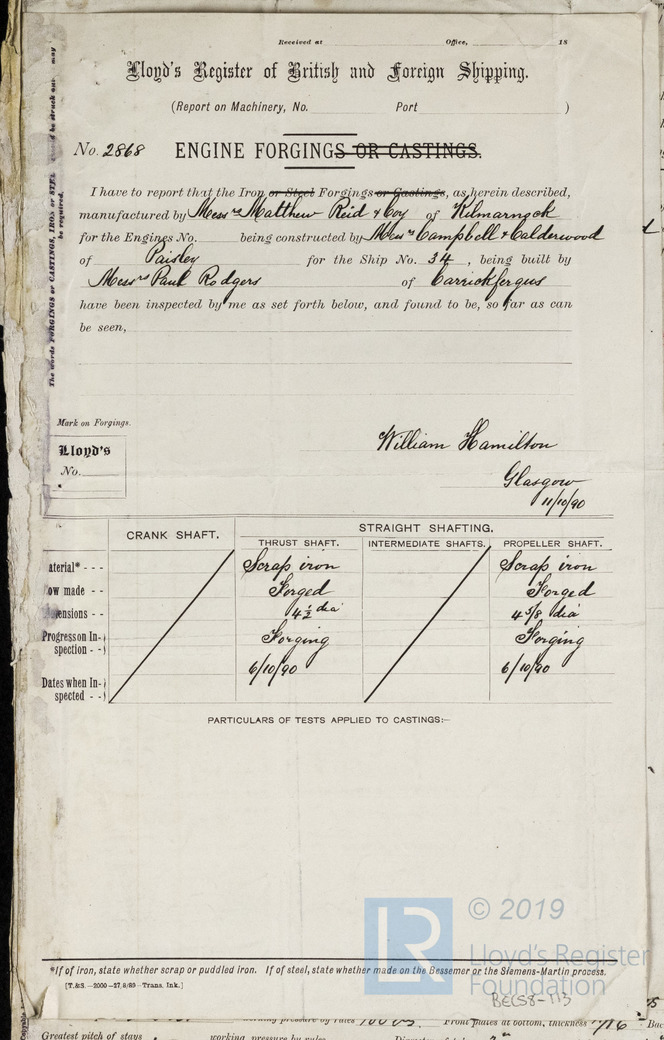 Received at Office, 18
Lloyd's Register of British and Foreign Shipping.
(Report on Machinery, No. Port )
No. 2868 ENGINE FORGINGS OR CASTINGS.
I have to report that the Iron or Steel Forgings or Castings, as herein described,
manufactured by Messrs Matthew Reid & Coy of Kilmarnock
for the Engines No. being constructed by Messrs Campbell & Calderwood
of Paisley for the Ship No. 34, being built by
Messrs Paul Rodgers of Carrickfergus
have been inspected by me as set forth below, and found to be, so far as can
be seen,
The words FORGINGS or CASTINGS, IRON or STEEL should be struck out as may
be required.
Mark on Forgings.
Lloyd's
No.
William Hamilton
Glasgow
11/10/90
CRANK SHAFT. STRAIGHT SHAFTING.
THRUST SHAFT. INTERMEDIATE SHAFTS. PROPELLER SHAFT.
aterial* - - - Scrap iron Scrap iron
ow made - - Forged Forged
ensions - - 4½ dia 4 5/8 dia
Progress on In-
spection - - Forging Forging
Dates when In-
spected - - 6/10/90 6/10/90
PARTICULARS OF TESTS APPLIED TO CASTINGS:—
© 2019
LR
Lloyd's Register
Foundation
*If of iron, state whether scrap or puddled iron. If of steel, state whether made on the Bessemer or the Siemens-Martin process.
[T.&S.—2000—27.9/89—Trans. Ink.]
BEC58-113
working pressure by rules Front plates at bottom, thickness 7/16" Bac
Greatest pitch of stays working pressure by rules